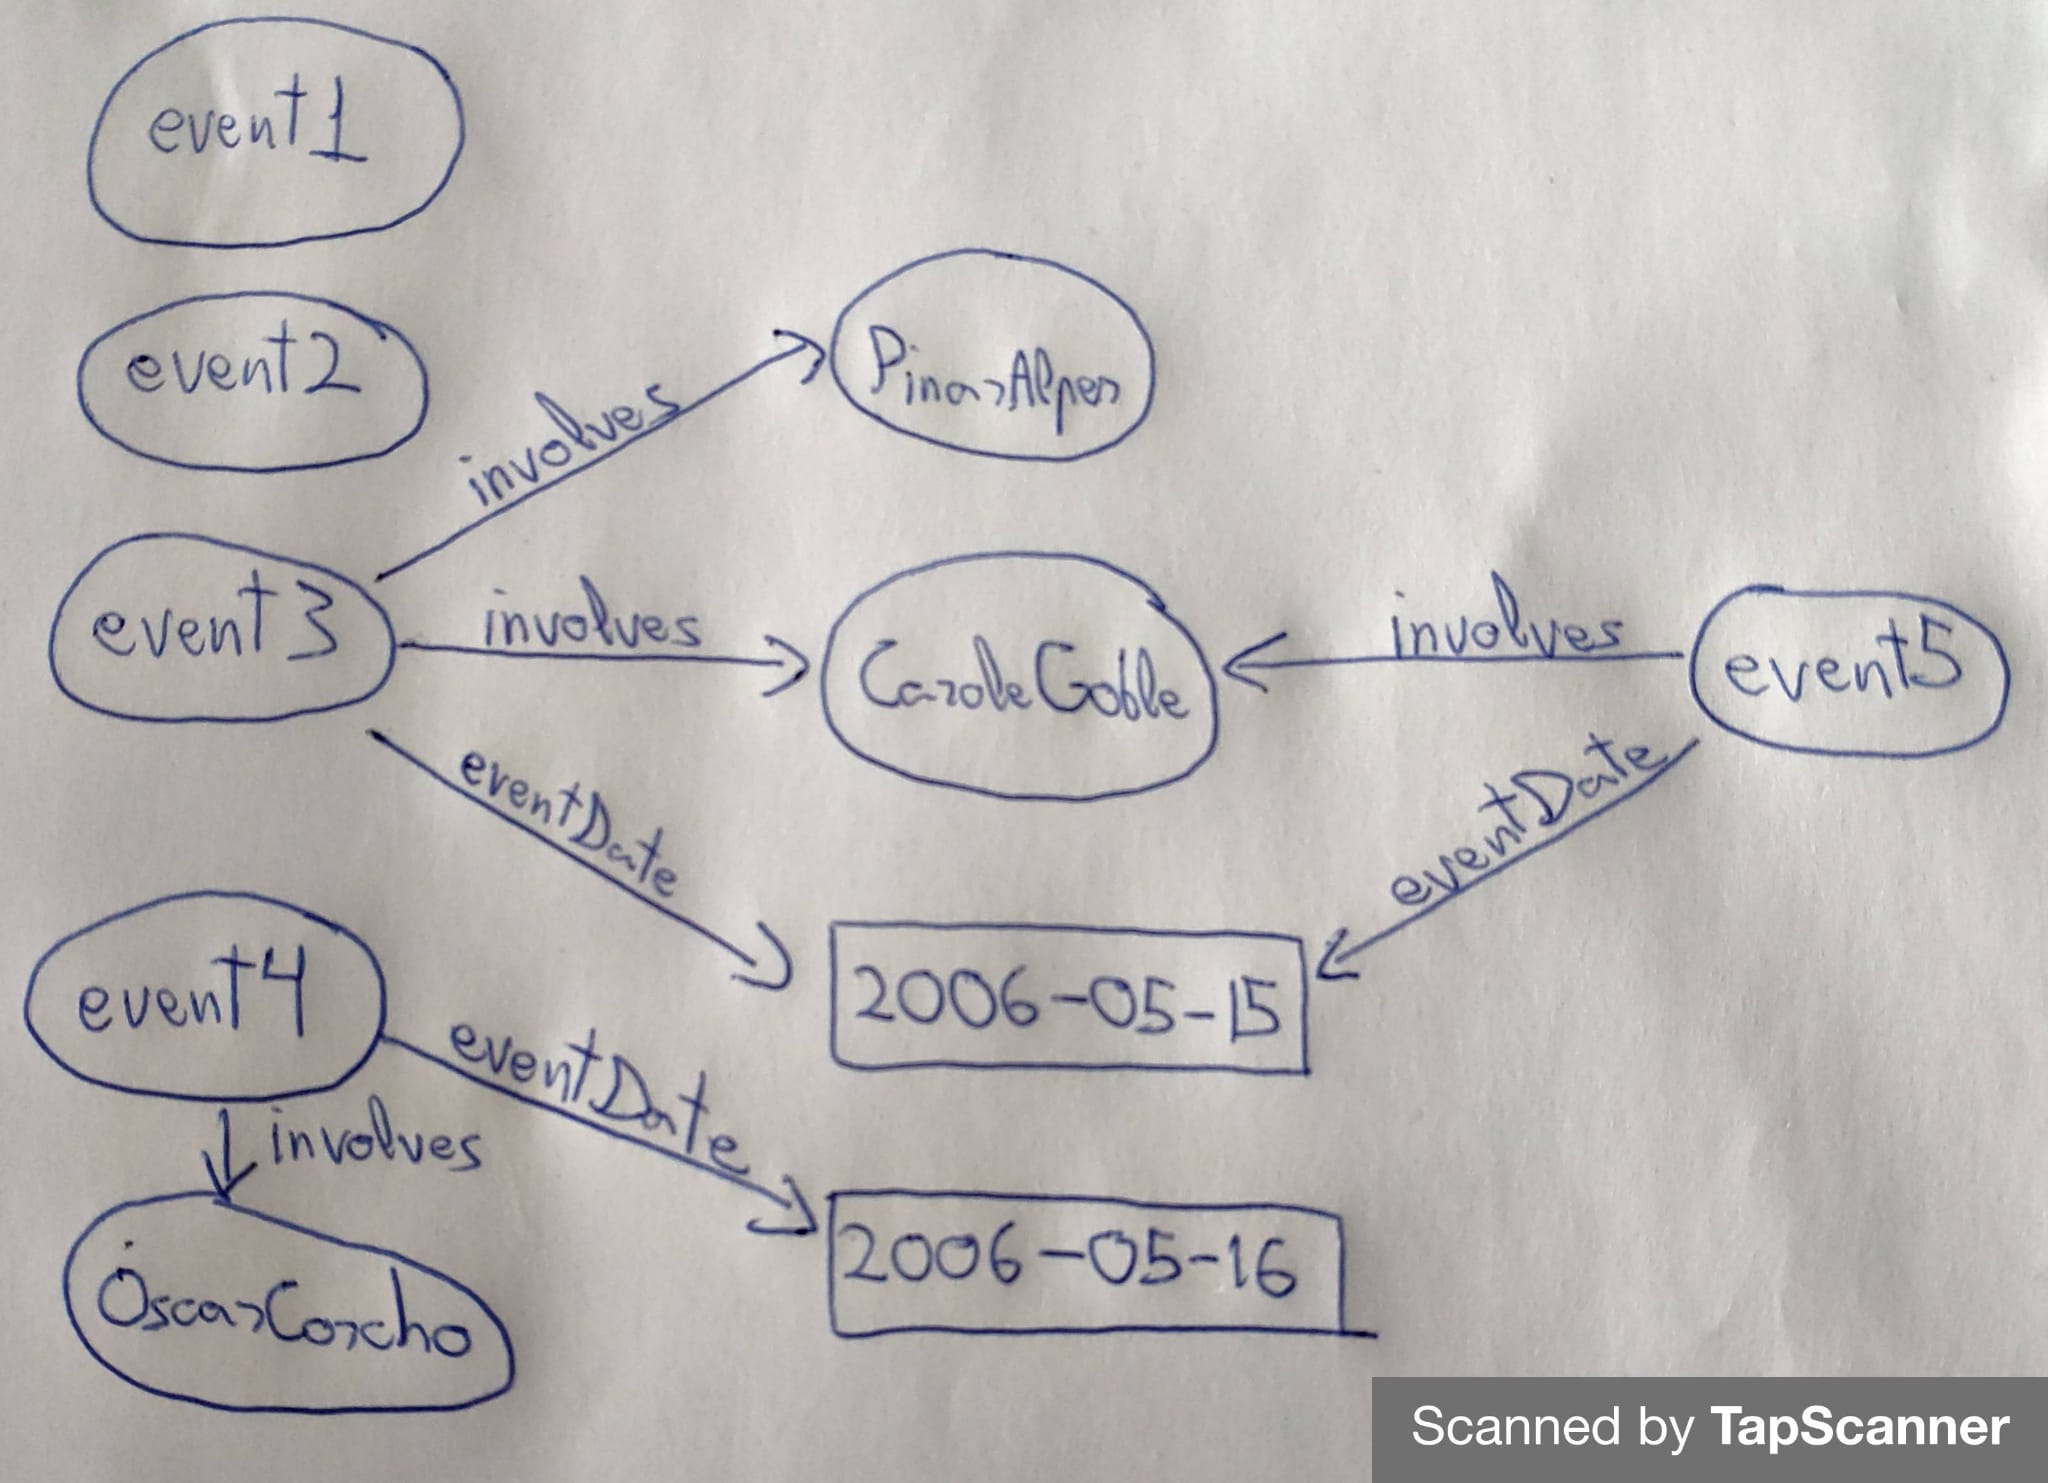 event1
event2
involves
PinarAlper
event3
involves
CaroleGoble
involves
event5
eventDate
eventDate
2006-05-15
event4
eventDate
involves
2006-05-16
ÓscarCorcho
Scanned by TapScanner